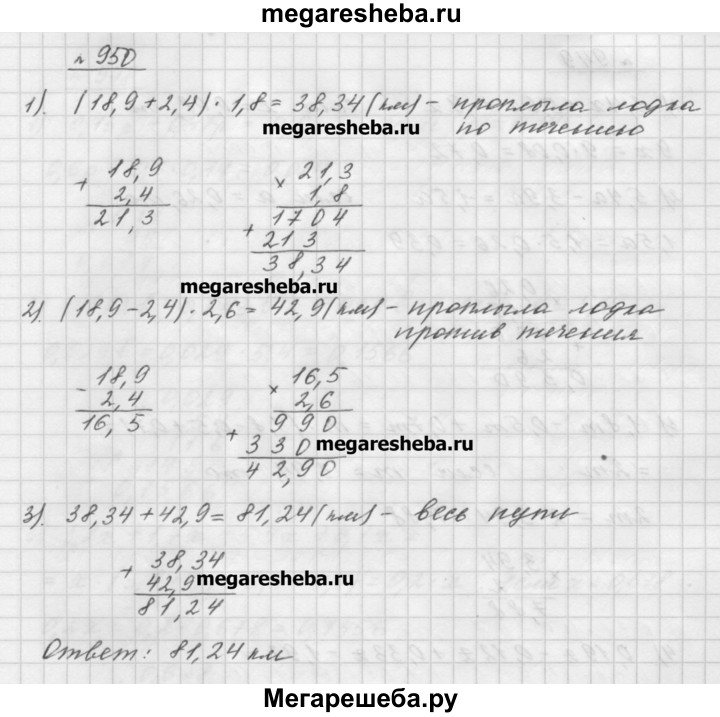 megaresheba.ru
№ 950
1). (18,9+2,4)·1,8=38,34(км)- проплыла лодка
megaresheba.ru по течению
+ 18,9 × 21,3
2,4 1,8
21,3 1704
+ 213
38,34
megaresheba.ru
2). (18,9-2,4)·2,6=42,9(км)- проплыла лодка
против течения
- 18,9 × 16,5
2,4 2,6
16,5 990
+ 330 megaresheba.ru
42,90
3). 38,34+42,9=81,24(км)- весь путь
+ 38,34
42,9 megaresheba.ru
81,24
Ответ: 81,24 км
Мегарешеба.ру